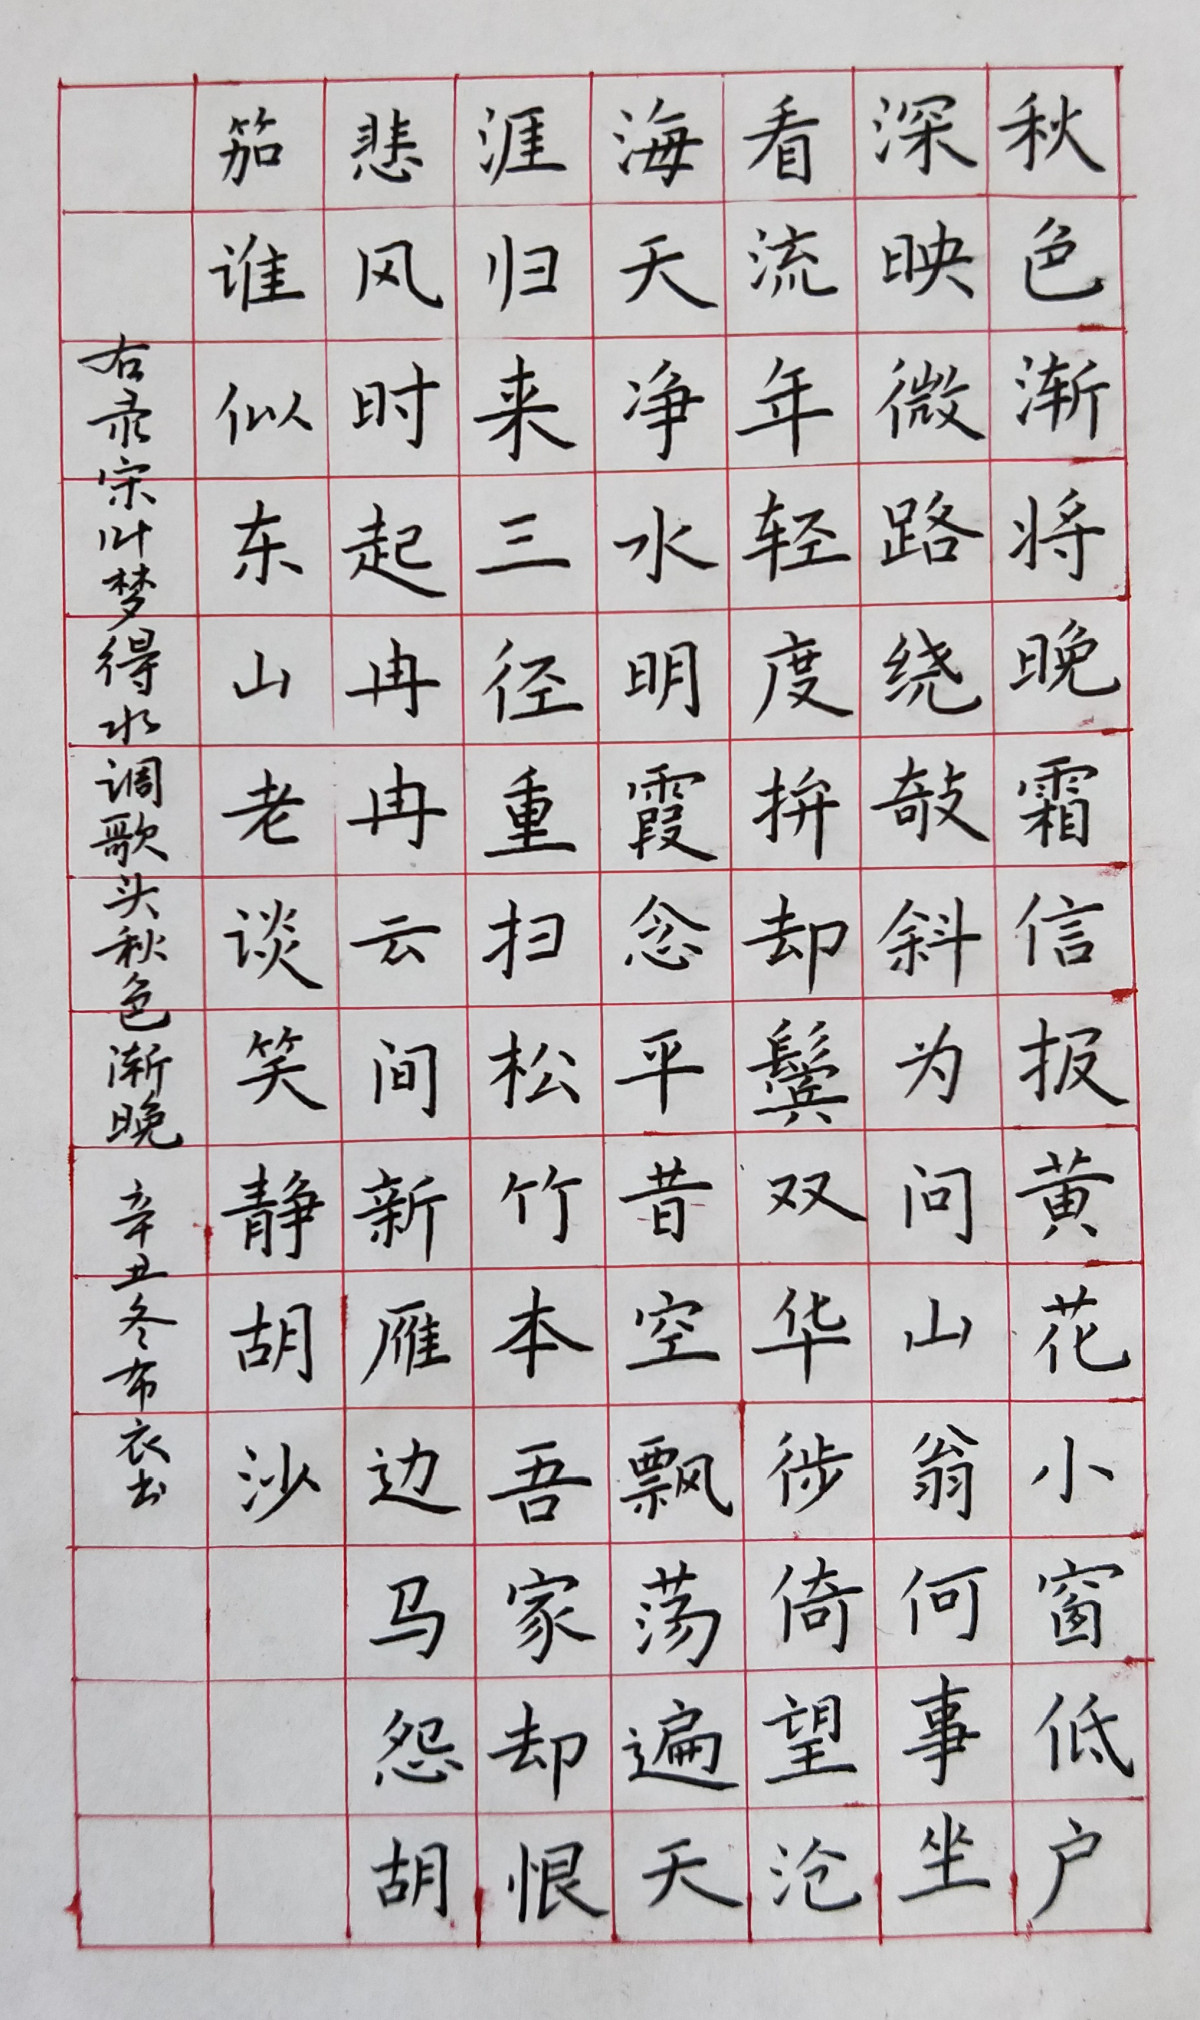 秋色渐将晚霜信报黄花小窗低户
深映微路绕敧斜为问山翁何事坐
看流年轻度拚却鬓双华徙倚望沧
海天净水明霞念平昔空飘荡遍天
涯归来三径重扫松竹本吾家却恨
悲风时起冉冉云间新雁边马怨胡
笳谁似东山老谈笑静胡沙
右录宋叶梦得水调歌头秋色渐晚 辛丑冬布衣书